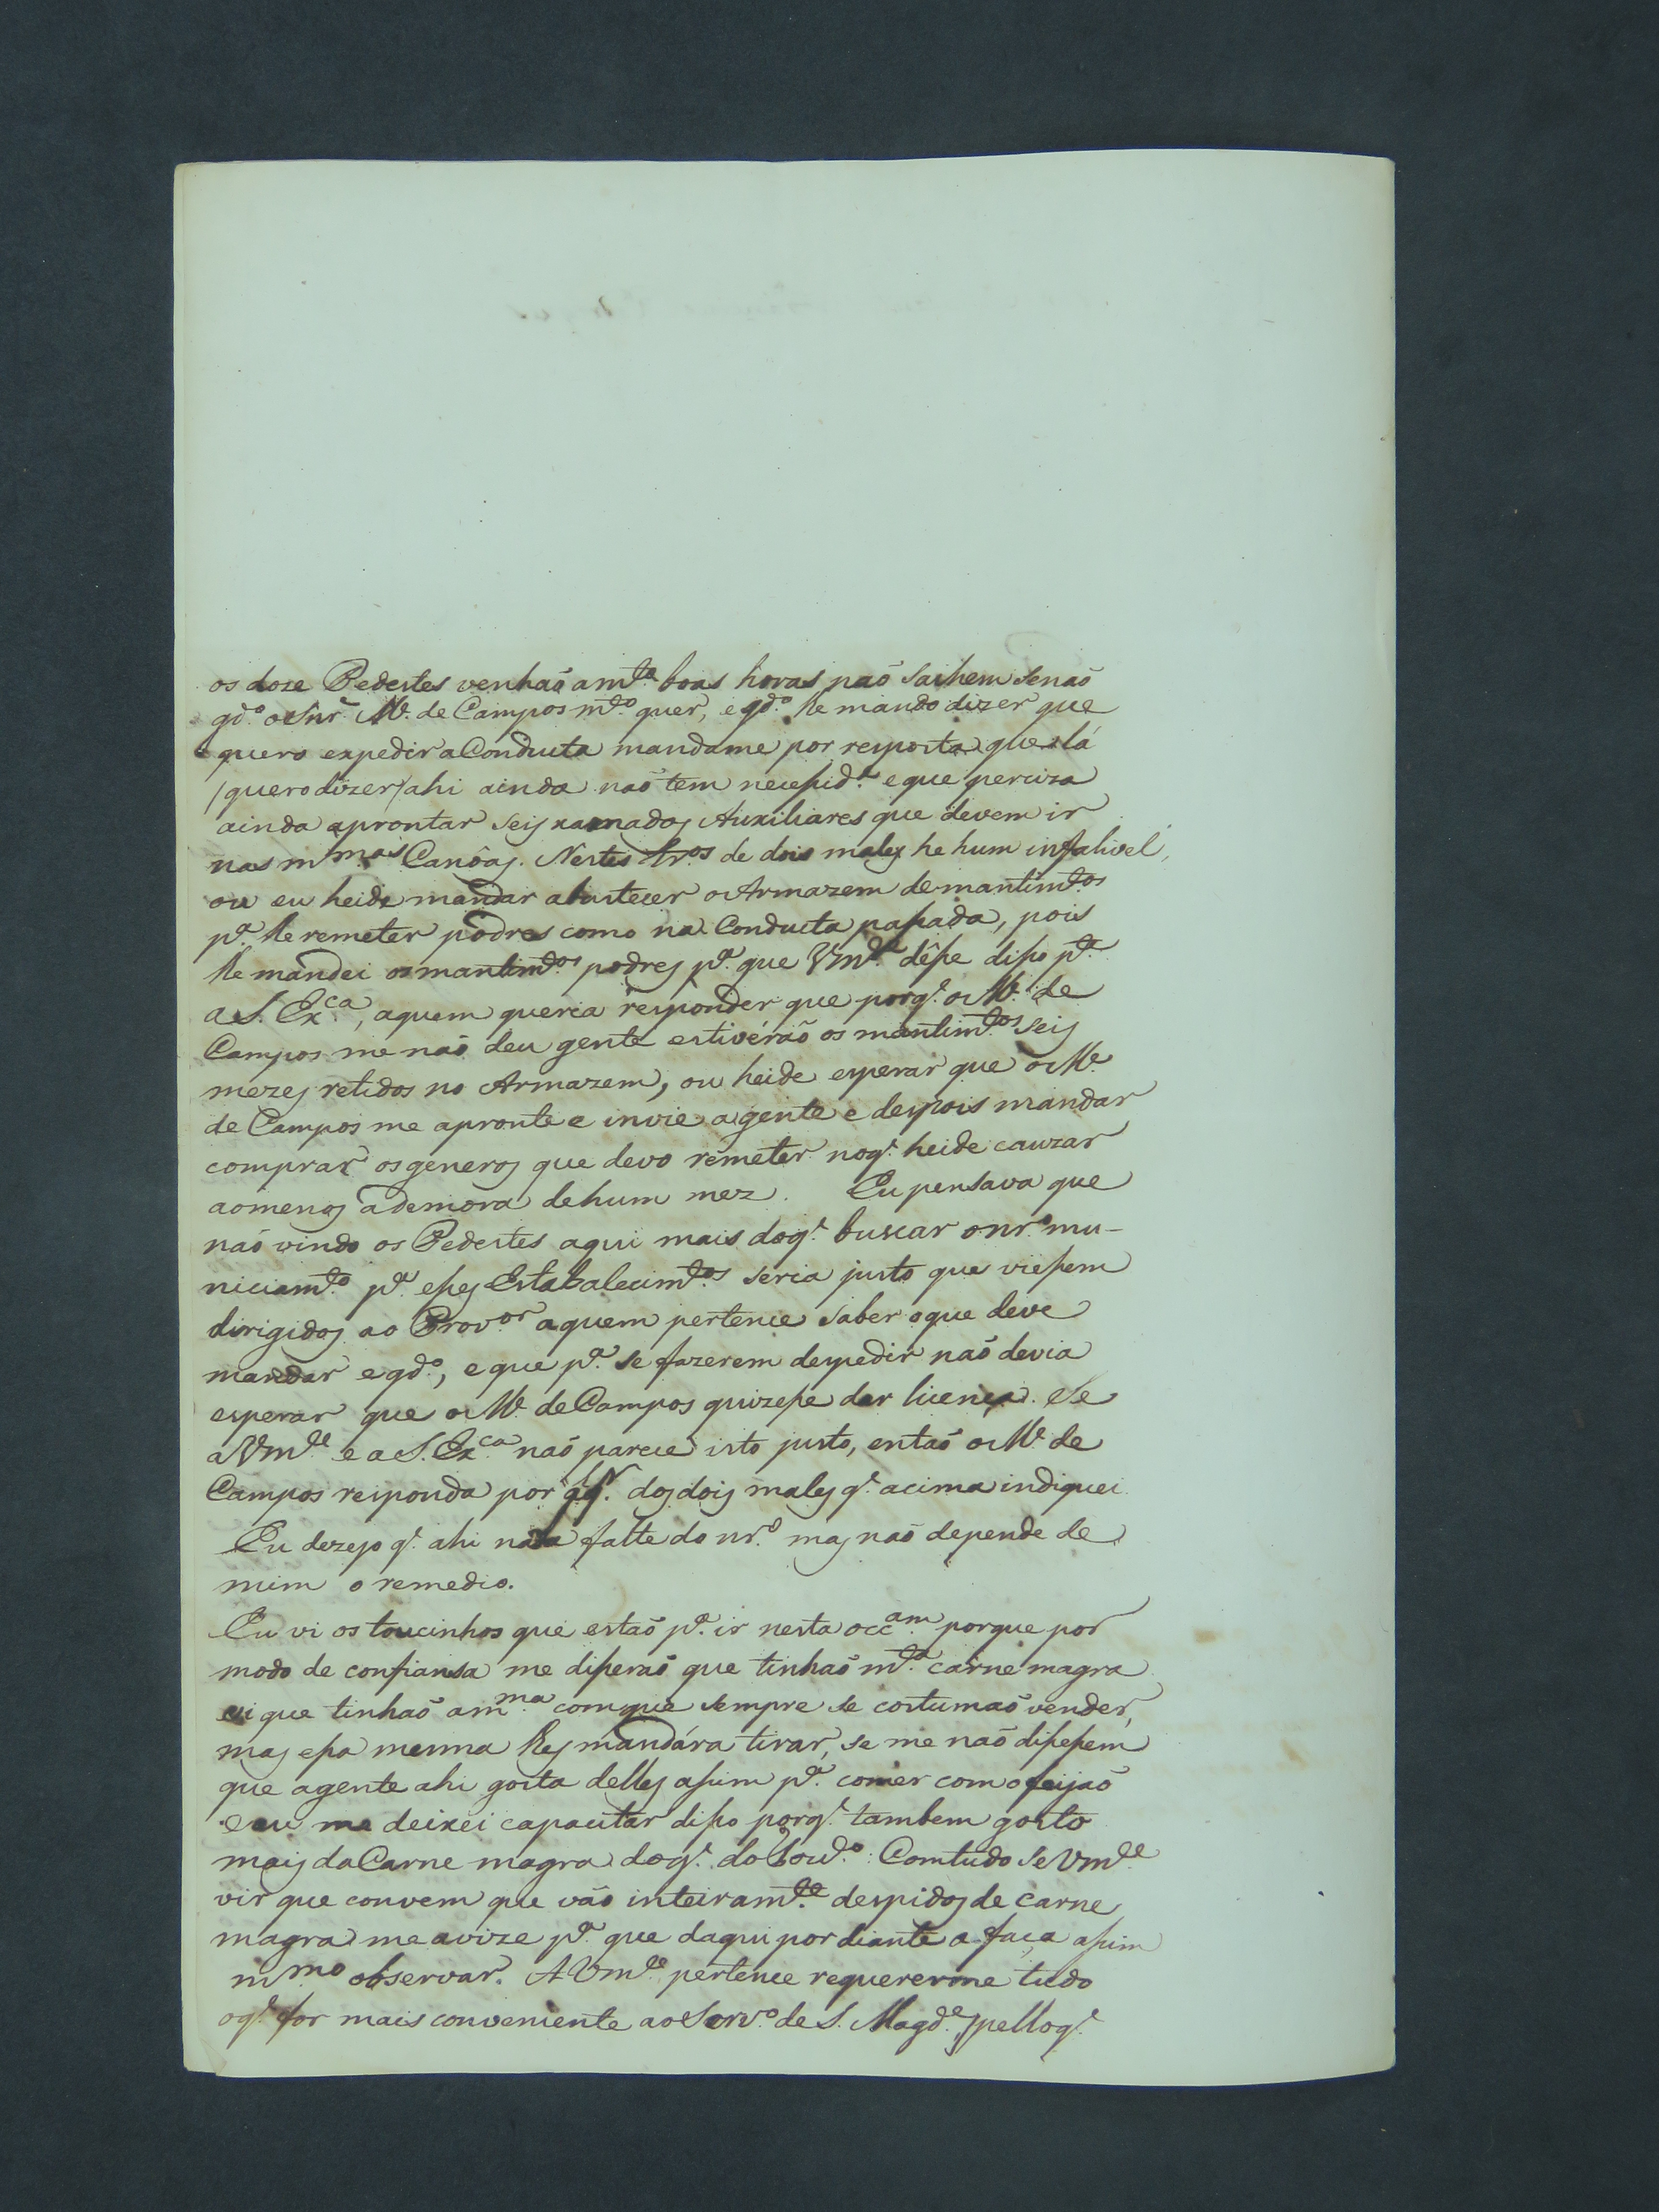 os doze Pedestes venhaõ a m.te boas horas naõ sahem senaõ
qd.o o Snr' M.e de Campos m.to quer, e qd.o lhe mando dizer que
quero expedir a Conducta mandame por resposta que lá
/quero dizer/ ahi ainda naõ tem necessid.e e que perciza
ainda aprontar seis xamados Auxiliares que devem ir
nas m.mas Canôas. Nestes tr.os de dois males he hum infalivel,
ou eu heide mandar abastecer o Armazem de mantim.tos
p.a lhe remeter pôdres como na Conducta passada, pois
lhe mandei os mantim.tos podres p.a que Vm.ce désse disso p.te
a S. Ex.ca, aquem queria responder que porq.' o M.e de
Campos me naõ deu gente estivéraõ os mantim.tos seis
mezes retidos no Armazem, ou heide esperar que o M.e
de Campos me apronte e invie a gente e depois mandar
comprar os generos que devo remeter no q.' heide cauzar
aomenos a demora de hum mez. Eu pensava que
naõ vindo os Pedestes aqui mais do q.' buscar o nr.o mu-
niciam.to p.a esses Estabalecim.tos seria justo que viessem
dirigidos ao Prov.or aquem pertence saber o que deve
mandar e qd.o, e que p.a se fazerem despedir naõ devia
esperar que o M.e de Campos quizesse dar licença. e Se
a Vm.ce e a S. Ex.ca naõ parece isto justo, entaõ o M.e de
Campos responda por qq.' dos dois males q.' acima indiquei.
Eu dezejo q.' ahi nada falte do nr.o mas naõ depende de
mim o remedio.
Eu vi os toucinhos que estaõ p.a ir nesta occ.am porque por
modo de confiansa me disseraõ que tinhaõ m.ta carne magra
vi que tinhaõ a m.ma com que sempre se costumaõ vender,
mas essa mesma lhes mandára tirar, se me naõ dissessem
que a gente ahi gosta delles assim p.a comer com o feijaõ
e eu me deixei capacitar disso porq.' tambem gosto
mais da Carne magra do q.' do Touc.o: Comtudo se Vm.ce
vir que convem que vão inteiram.te despidos de carne
magra me avize p.a que daqui por diante a faça assim
m.mo observar. A Vm.ce pertence requererme tudo
o q.' for mais conveniente ao Serv.o de S. Magd.e, pello q.'